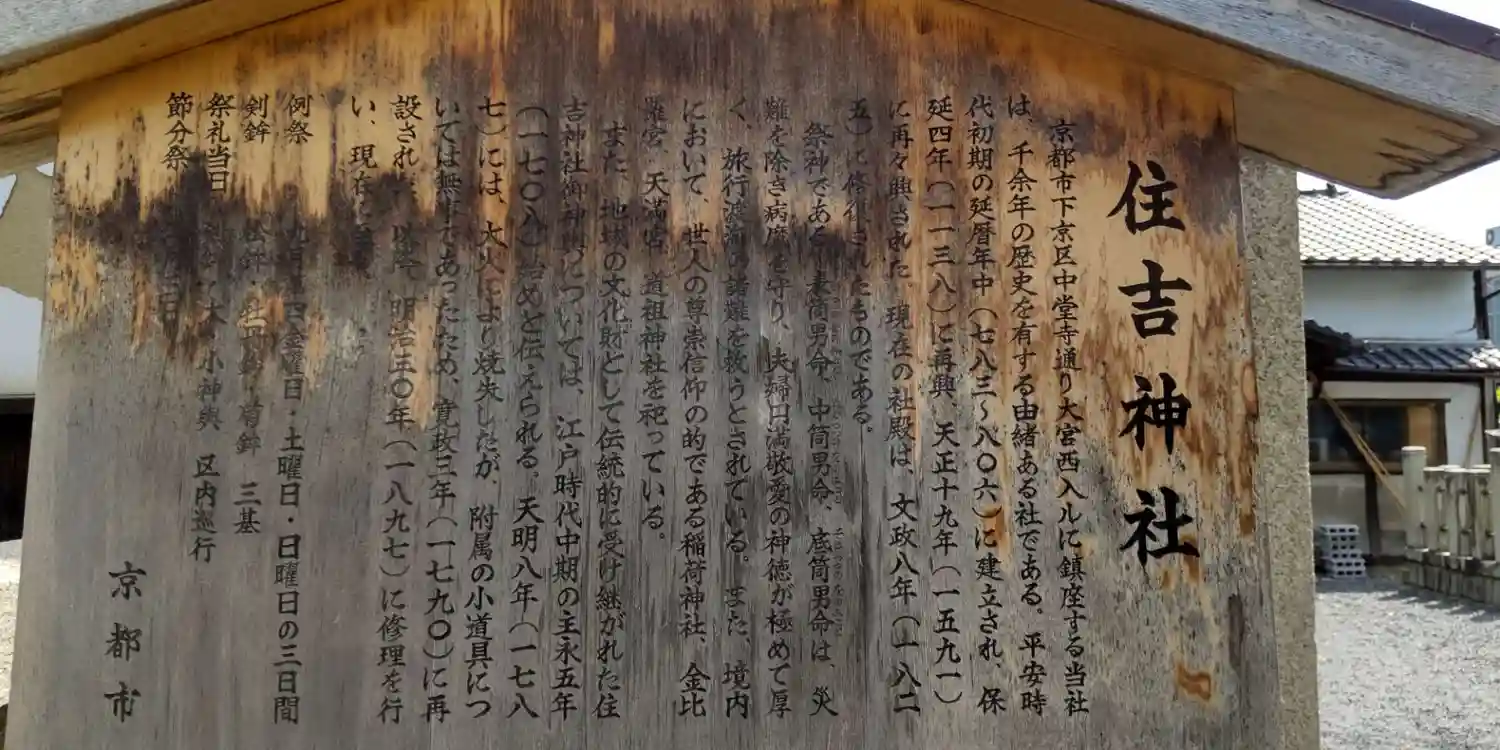 住吉神社
京都市下京区中堂寺通り大宮西入ルに鎮座する当社
は、千余年の歴史を有する由緒ある社である。平安時
代初期の延暦年中(七八三〜八〇六)に建立され、保
延四年(一一三八)に再興、天正十九年(一五九一)
に再々興された。現在の社殿は、文政八年(一八二
五)に修復されたものである。
祭神である表筒男命、中筒男命、底筒男命は、災
難を除き病魔を守り、夫婦円満敬愛の神徳が極めて厚
く、旅行渡海の諸難を救うとされている。また、境内
において、世人の尊崇信仰の的である稲荷神社、金比
羅宮、天満宮、道祖神社を祀っている。
また、地域の文化財として伝統的に受け継がれた住
吉神社御神輿については、江戸時代中期の主永五年
(一七〇八)始めと伝えられる。天明八年(一七八
七)には、大火により焼失したが、附属の小道具につ
いては無事であったため、寛政三年(一七九〇)に再
設され 明治三〇年(一八九七)に修理を行
い、現在
例祭 九月 金曜日・土曜日・日曜日の三日間
剣鉾 ・牡丹鉾・菊鉾 三基
祭礼当日 大・小神輿 区内巡行
節分祭 日
京都市